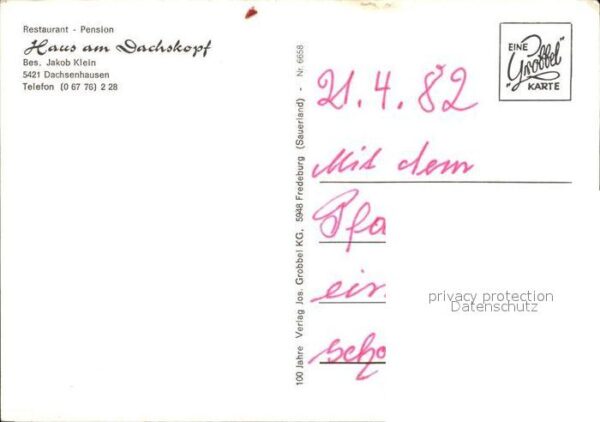 Restaurant - Pension
Haus am Dachskopf
Bes. Jakob Klein
5421 Dachsenhausen
Telefon (0 67 76) 2 28
100 Jahre Verlag Jos. Grobbel KG, 5948 Fredeburg (Sauerland) - Nr. 6658
EINE
"Grobbel"
KARTE
21.4.82
Mit dem
Pfa
ein
scho
privacy protection
Datenschutz